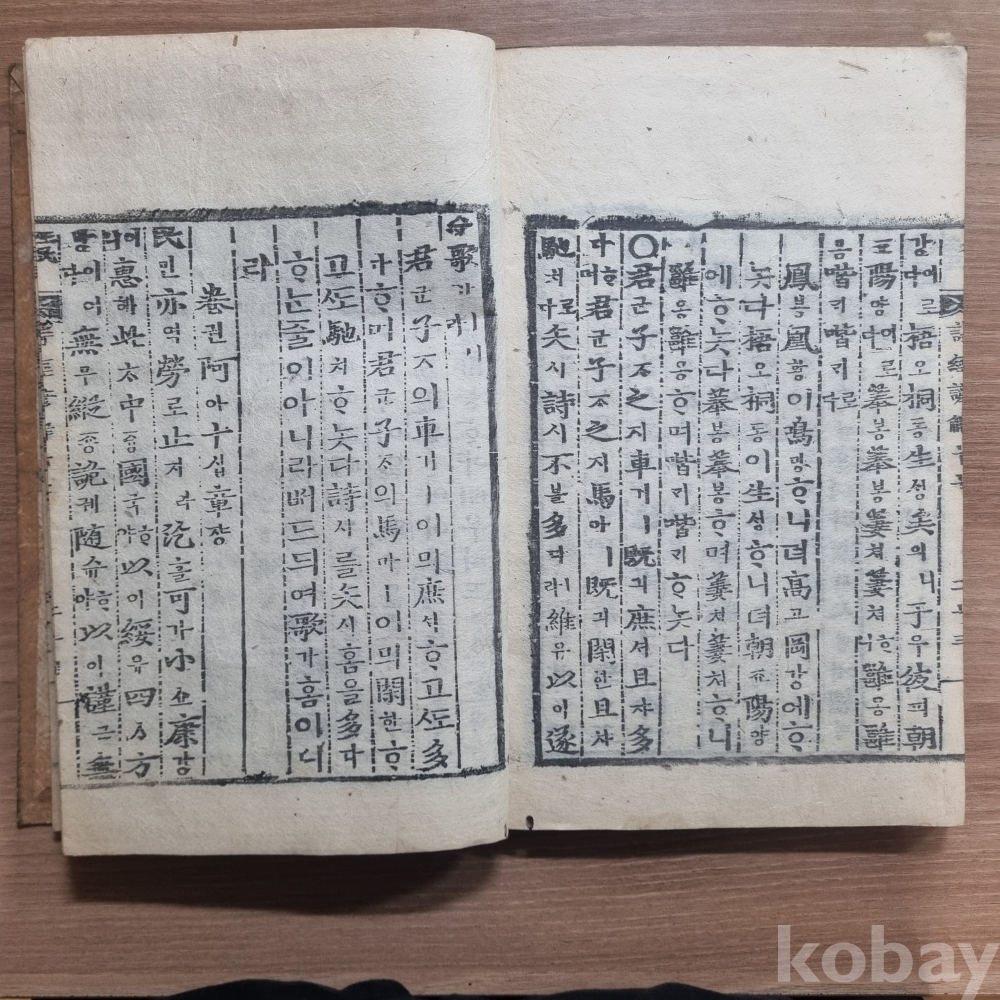 강에로다梧오桐동生성矣의니于우彼피朝
죠陽양이로다菶봉菶봉萋쳐萋쳐ᄒᆞ니雝옹雝
옹喈기喈기로다
鳳봉凰황이鳴명ᄒᆞ니뎌高고岡강에ᄒᆞ
놋다梧오桐동이生성ᄒᆞ니뎌朝죠陽양
에ᄒᆞ놋다菶봉菶봉ᄒᆞ며萋쳐萋쳐ᄒᆞ니
雝옹雝옹ᄒᆞ며喈기喈기ᄒᆞ놋다
○君군子ᄌᆞ之지車거ㅣ旣긔庶셔且챠多
다ᄒᆞ며君군子ᄌᆞ之지馬마ㅣ旣긔閑한且챠
馳치로다矢시詩시不블多다라維유以이遂
歌가
君군子ᄌᆞ의車거ㅣ이믜庶셔ᄒᆞ고ᄯᅩ多
다ᄒᆞ며君군子ᄌᆞ의馬마ㅣ이믜閑한ᄒᆞ
고ᄯᅩ馳치ᄒᆞ놋다詩시를矢시홈을多다
ᄒᆞ논줄이아니라ᄡᅥ드듸여歌가홈이니
라
卷권阿아十십章쟝
民민亦역勞로止지라汔흘可가小쇼康강
이니惠혜此ᄎᆞ中듕國국ᄒᆞ야以이綏유四ᄉᆞ方
방이어다無무縱죵詭궤隨슈ᄒᆞ야以이謹근無
kobay